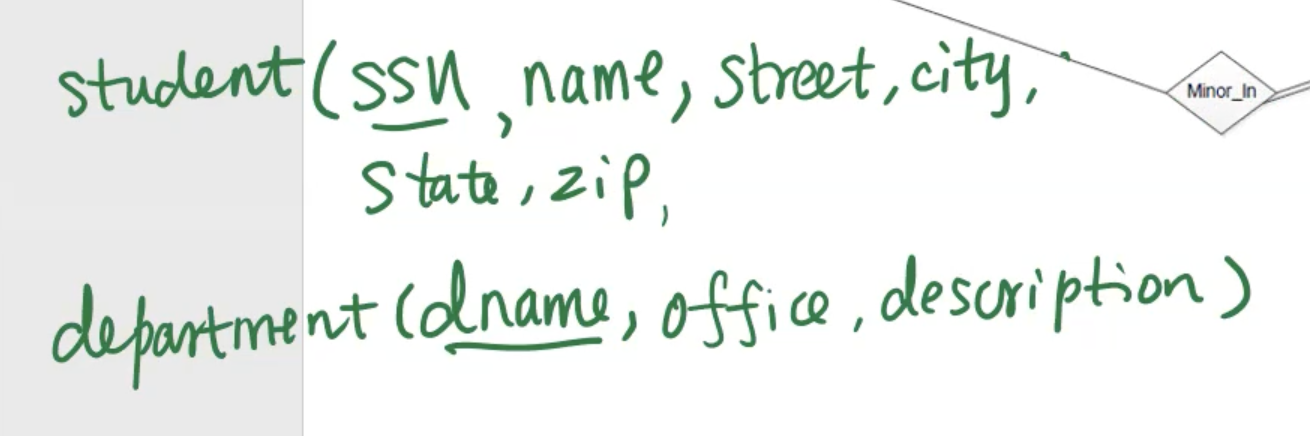 student(ssn, name, street, city,
Minor_In
state, zip,
department(dname, office, description)